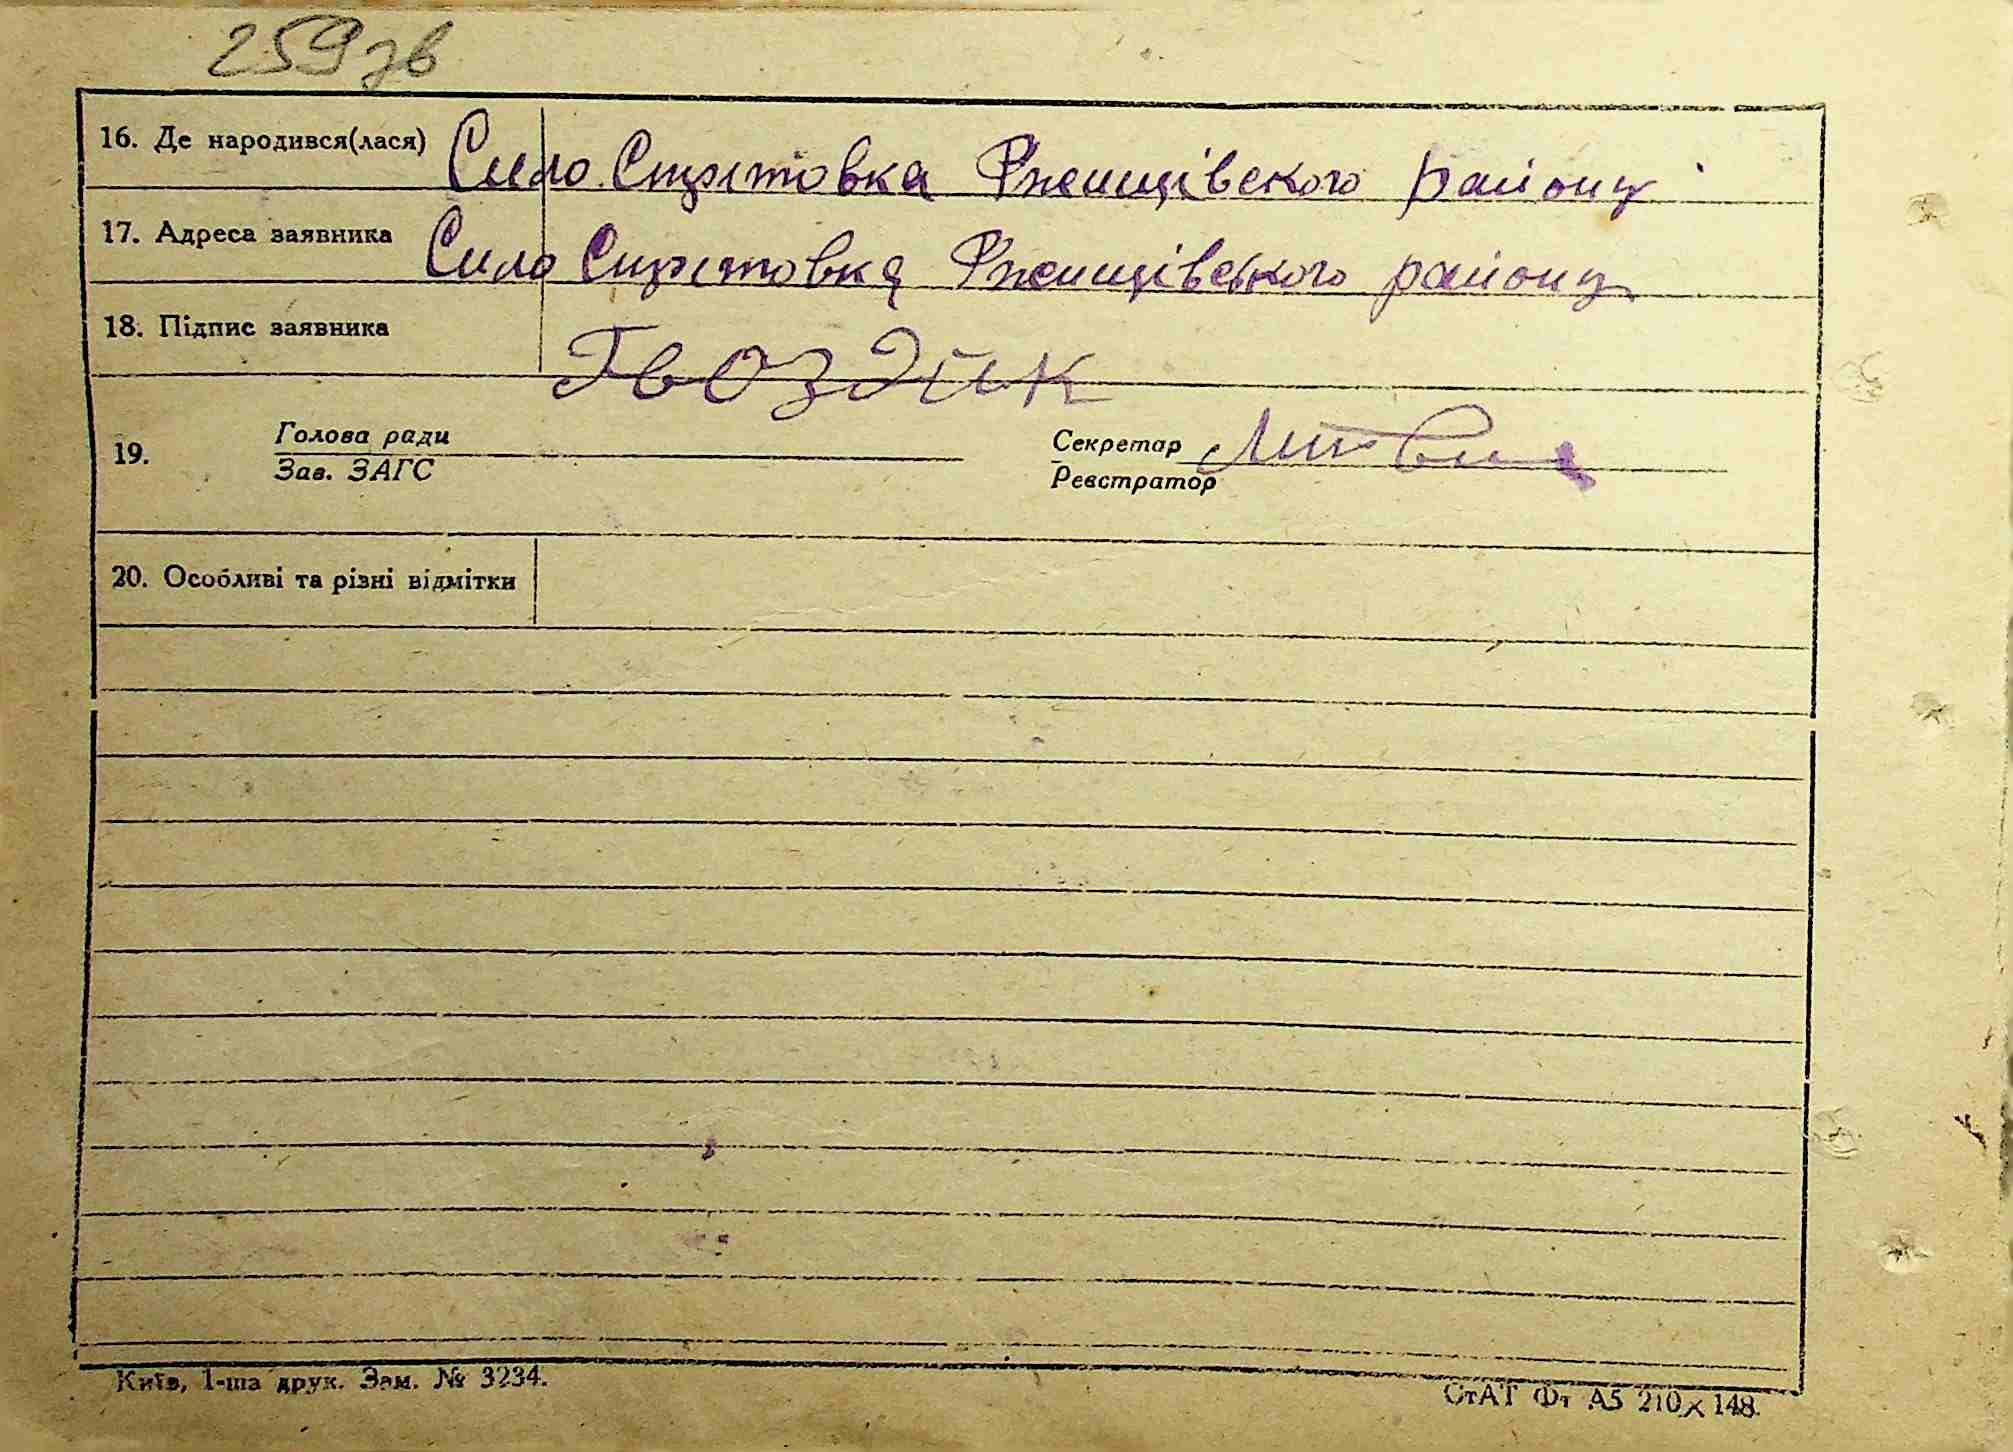 259зв
16. Де народився(лася) Село Стрітовка Ржищівского району
17. Адреса заявника Село Стрітовка Ржищівського району
18. Підпис заявника Гвоздик
19. Голова ради Секретар Литвин
Зав. ЗАГС Реєстратор
20. Особливі та різні відмітки
Київ, 1-ша друк. Зам. № 3234.
СтАТ Фт А5 210×148.